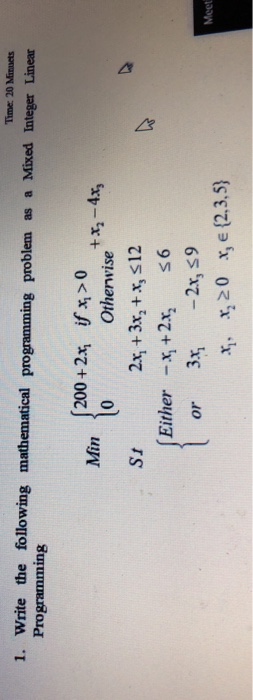 Time: 20 Minuets
1. Write the following mathematical programming problem as a Mixed Integer Linear
Programming
Min { 200 + 2x₁ if x₁ > 0
0 Otherwise + x₂ − 4x₃
St 2x₁ + 3x₂ + x₃ ≤ 12
{ Either −x₁ + 2x₂ ≤ 6
or 3x₁ − 2x₃ ≤ 9
x₁, x₂ ≥ 0 x₃ ∈ {2,3,5}
Meet